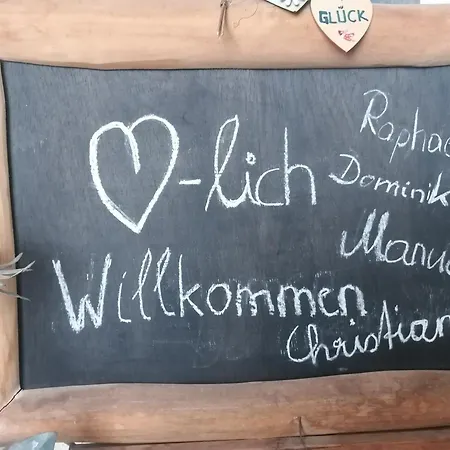 GLÜCK
♡-lich
Willkommen
Raphae
Dominik
Manue
Christian